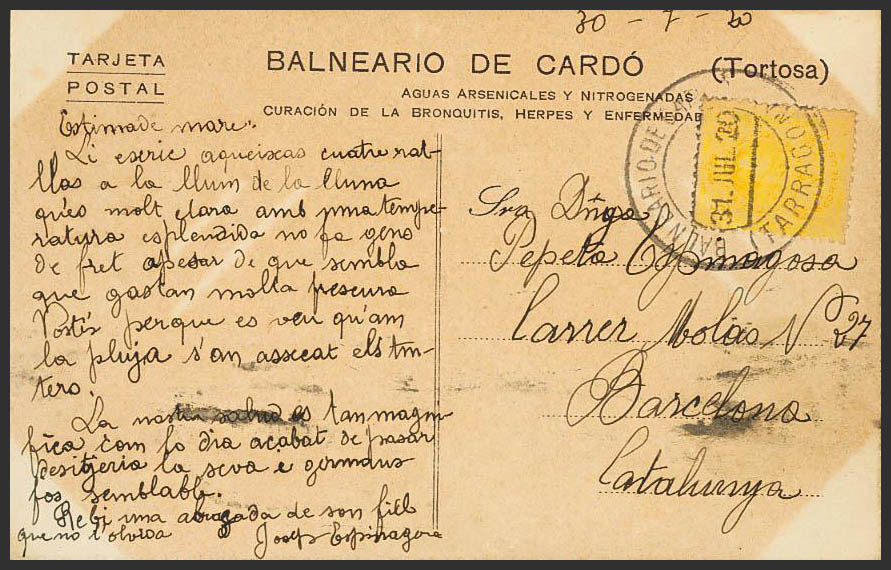 30 - 7 - 20
TARJETA
POSTAL
BALNEARIO DE CARDÓ (Tortosa)
AGUAS ARSENICALES Y NITROGENADAS
CURACIÓN DE LA BRONQUITIS, HERPES Y ENFERMEDAD
BALNEARIO DE
31. JUL. 20
(TARRAGON
Estimade mare:
Li escric aqueixas cuatre rat-
llas a la llum de la lluna
qu'es molt clara amb una tempe-
ratura esplendida no fa gens
de fret apesar de que sembla
que gastan molta frescura
Vostès perque es veu qu'am
la pluja s'an assecat els tin-
ters.
La nostra salud es tan magni-
fica com lo dia acabat de pasar
desitjeria la seva i germans
fos semblable.
Rebi una abraçada de son fill
que no l'olvida Josep Espinagosa
Sra Dñya
Pepeta Espinagosa
Carrer Molas Nº 27
Barcelona
Catalunya